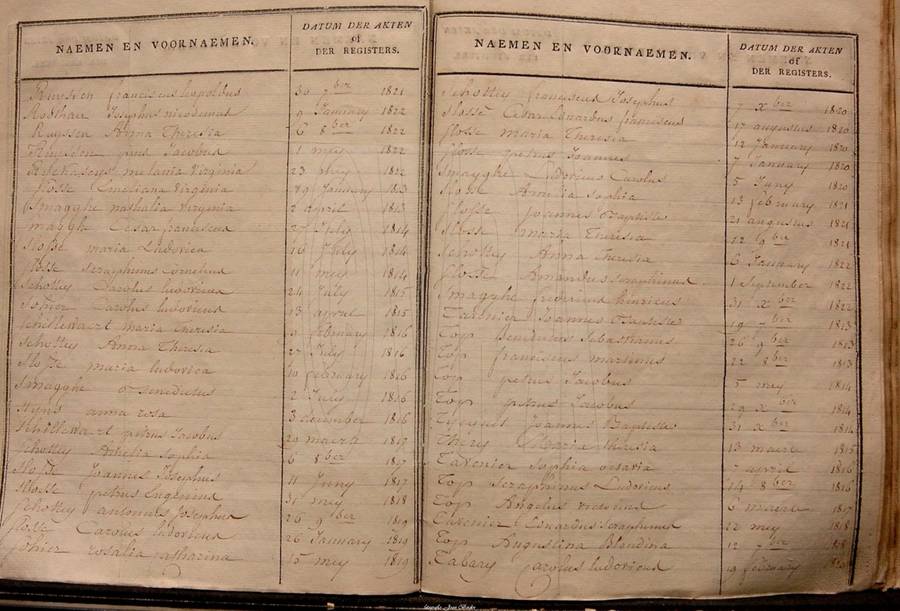 NAEMEN EN VOORNAEMEN.
DATUM DER AKTEN
of
DER REGISTERS.
Ruyssen franciscus leopoldus 30 7ber 1821
Rodhan Josephus nicodemus 9 January 1822
Ruyssen Anna Theresia 6 8ber 1822
Ruyssen pius Jacobus 1 mey 1822
melania Virginia 23 mey 1822
Slosse Emeliana Virginia 29 January 1813
Smagghe nathalia Virginia 2 april 1813
magghe Cesar franciscus 27 1814
Slosse maria Ludovica 16 July 1814
Slosse Seraphinus Cornelius 11 mey 1814
Schottey Carolus ludovicus 24 July 1815
Sohier Carolus ludovicus 13 april 1815
maria Theresia 9 february 1816
Schottey Anna Theresia 27 July 1816
Slosse maria ludovica 10 february 1816
Smagghe Benedictus 2 1816
Styns anna rosa 3 december 1816
petrus Jacobus 20 maert 1817
Schottey Amelia Sophia 6 8ber 1817
Slosse Joannes Josephus 11 Juny 1817
Slosse petrus Eugenius 31 mey 1818
Schottey antonius Josephus 26 9ber 1819
Slosse Carolus ludovicus 26 January 1819
Sohier rosalia catharina 15 mey 1819
NAEMEN EN VOORNAEMEN.
DATUM DER AKTEN
of
DER REGISTERS.
Schottey franciscus Josephus 7 xber 1820
Slosse franciscus 17 augustus 1820
Slosse maria Theresia 12 January 1820
Slosse petrus Joannes 7 January 1820
Smagghe Ludovicus Carolus 5 Juny 1820
Slosse Amelia Sophia 13 february 1821
Slosse Joannes Baptiste 21 augustus 1821
Slosse maria Theresia 22 9ber 1821
Schottey Anna Theresia 6 January 1822
Slosse Amandus Seraphinus 1 September 1822
Smagghe fredericus henricus 31 xber 1822
Tavenier Joannes Baptiste 19 7ber 1813
Top Benedictus Sebastianus 26 9ber 1813
Top franciscus martinus 22 8ber 1813
Top petrus Jacobus 5 mey 1814
Top petrus Jacobus 29 xber 1814
Joannes Baptiste 31 xber 1814
Thery Marie Theresia 13 maert 1815
Tavenier Sophia 7 april 1816
Top Seraphinus Ludovicus 14 8ber 1816
Top Angelus victorinus 6 maert 1817
Tavenier Leonardus Seraphinus 22 mey 1818
Top Augustina Blondina 12 7ber 1818
Tabary Carolus ludovicus 19 february 1820